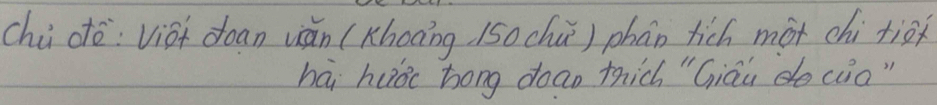 Chủ đề: Viết đoạn văn (Khoảng 150 chữ) phân tích một chi tiết
hài hước trong đoạn trích "Giấu de của"